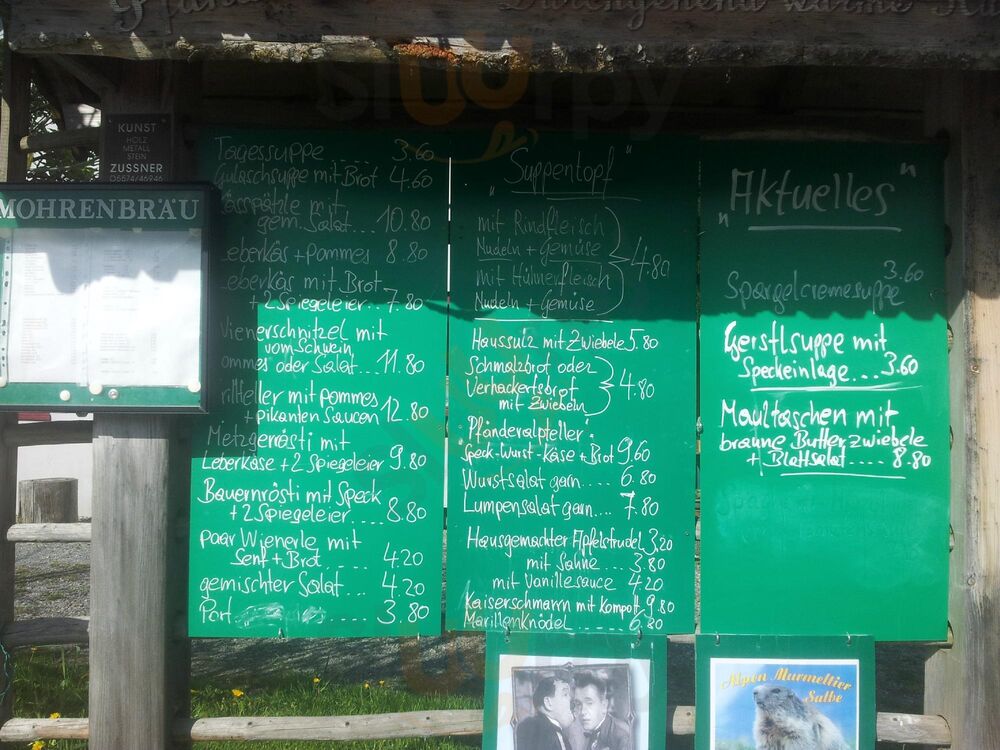 Durchgehend warme
KUNST
HOLZ
METALL
STEIN
ZUSSNER
MOHRENBRÄU
Tagessuppe .... 3.60
Gulaschsuppe mit Brot 4.60
Kässpätzle mit
gem. Salat... 10.80
Leberkäs + Pommes 8.80
Leberkäs mit Brot
+ 2 Spiegeleier.. 7.80
Wienerschnitzel mit
vom Schwein
Pommes oder Salat... 11.80
Grillteller mit pommes
+ pikanten Saucen 12.80
Metzgerrösti mit
Leberkäse + 2 Spiegeleier 9.80
Bauernrösti mit Speck
+ 2 Spiegeleier.... 8.80
paar Wienerle mit
Senf + Brot..... 4.20
gemischter Salat... 4.20
Port. ..... 3.80
"Suppentopf"
mit Rindfleisch
Nudeln + Gemüse
4.80
mit Hühnerfleisch
Nudeln + Gemüse
Haussulz mit Zwiebele 5.80
Schmalzbrot oder
Verhackertsbrot 4.80
mit Zwiebeln
Pfänderalpteller:
Speck-Wurst-Käse + Brot 9.60
Wurstsalat garn.... 6.80
Lumpensalat garn.... 7.80
Hausgemachter Apfelstrudel 3.20
mit Sahne... 3.80
mit Vanillesauce 4.20
Kaiserschmarrn mit Kompott 9.80
Marillenknödel......... 6.80
"Aktuelles"
3.60
Spargelcremesuppe
Gerstlsuppe mit
Speckeinlage... 3.60
Maultaschen mit
braune Butterzwiebele
+ Blattsalat..... 8.80
Alpen Murmeltier
Salbe
sluurpy